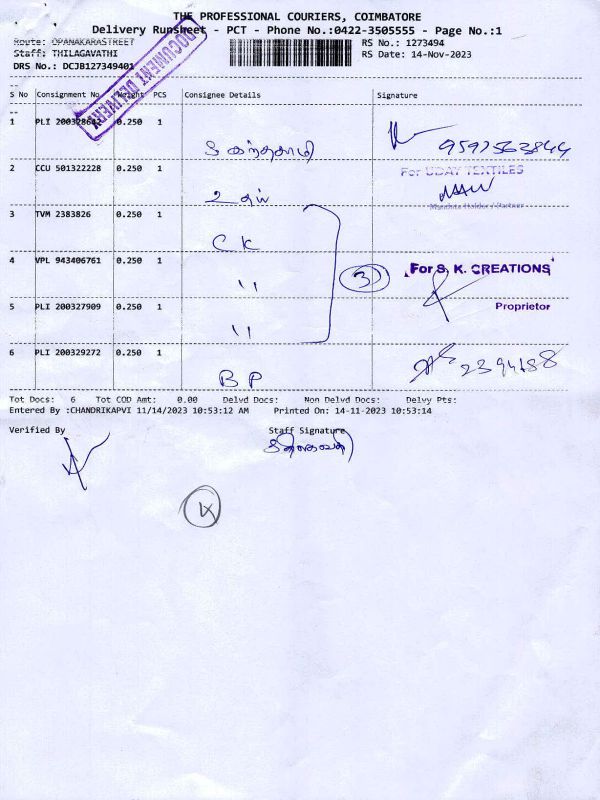 THE PROFESSIONAL COURIERS, COIMBATORE
Delivery Runsheet - PCT - Phone No.:0422-3505555 - Page No.:1
Route: OPANAKARASTREET
RS No.: 1273494
Staff: THILAGAVATHI
RS Date: 14-Nov-2023
DRS No.: DCJB127349401
DOCUMENT DELIVERY
S No Consignment No Weight PCS Consignee Details Signature
1 PLI 200328642 0.250 1
9597563844
2 CCU 501322228 0.250 1
For UDAY TEXTILES
உதய்
3 TVM 2383826 0.250 1
CK
4 VPL 943406761 0.250 1
" 3
For S. K. CREATIONS
5 PLI 200327909 0.250 1
Proprietor
"
6 PLI 200329272 0.250 1
BP
Tot Docs: 6 Tot COD Amt: 0.00 Delvd Docs: Non Delvd Docs: Delvy Pts:
Entered By :CHANDRIKAPVI 11/14/2023 10:53:12 AM Printed On: 14-11-2023 10:53:14
Verified By Staff Signature